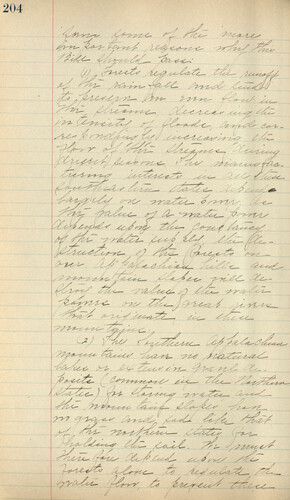 204
some of the more
important reasons why this
Bill should pass.
(1) Forests regulate the runoff
of the rainfall and tend
to preserve an even flow in
the streams, decreasing the
intensity of floods and cor-
respondingly increasing the
flow of the streams during
drouth seasons. The manufac-
turing interests in all these
Southeastern States depend
largely on water power, as
the value of a water power
depends upon the constancy
of the water supply, the de-
struction of the forests on
our Appalachian hills and
mountain slopes will de-
stroy the value of the water
powers on the great rivers
that originate in these
mountains.
(2) The Southern Appalachian
mountains have no natural
lakes or extensive gravel de-
posits (common in the Northern
States) for storing water and
the mountain slopes have
no grass and sod like that
of the northern states for
holding the soil. We must
therefore depend upon the
forests alone to regulate the
water flow to prevent these